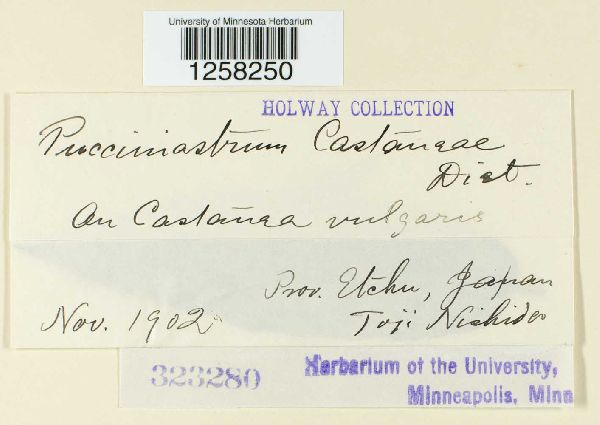 University of Minnesota Herbarium
1258250
HOLWAY COLLECTION
Pucciniastrum Castaneae
Diet.
On Castanea vulgaris
Prov. Etchu, Japan
Nov. 1902
Toji Nishida
323280
Herbarium of the University,
Minneapolis, Minn